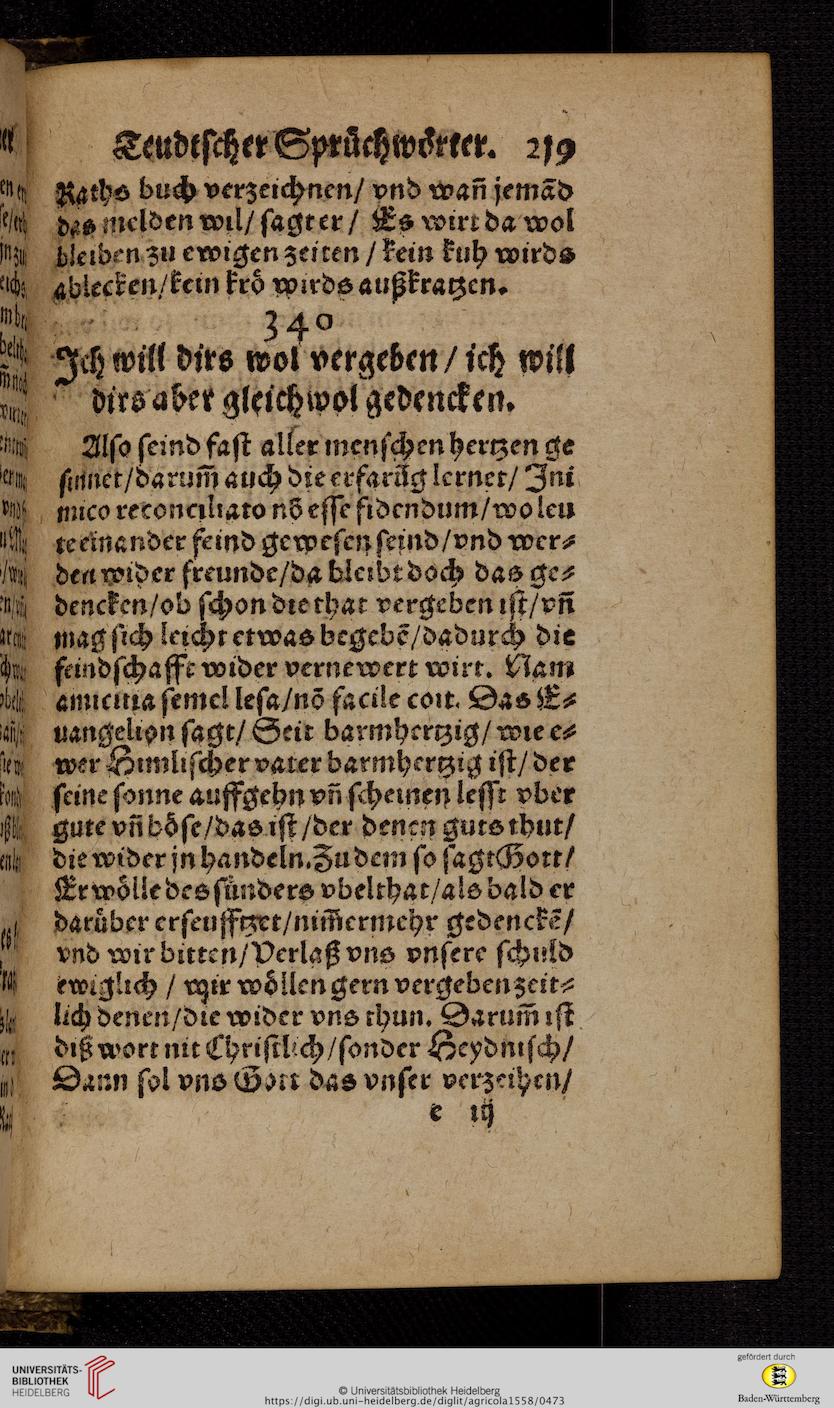 Teudtſcher Sprüchwörter. 219
Raths buch verzeichnen/ vnd wañ jemãd
das melden wil/ ſagt er/ Es wirt da wol
bleiben zu ewigen zeiten / kein kuh wirds
ablecken/kein krö wirds außkratzen.
340
Ich will dirs wol vergeben / ich will
dirs aber gleichwol gedencken.
Alſo ſeind faſt aller menſchen hertzen ge
ſinnet/darum̃ auch die erfarũg lernet/ Ini
mico reconciliato nõ eſſe fidendum/wo leu
te einander feind geweſen ſeind/vnd wer⸗
den wider freunde/da bleibt doch das ge⸗
dencken/ob ſchon die that vergeben iſt/vñ
mag ſich leicht etwas begebẽ/dadurch die
feindſchafft wider vernewert wirt. Nam
amicitia ſemel leſa/nõ facile coit. Das E⸗
uangelion ſagt/ Seit barmhertzig/ wie e⸗
wer Himliſcher vater barmhertzig iſt/ der
ſeine ſonne auffgehn vñ ſcheinen leſſt vber
gute vñ böſe/das iſt/der denen guts thut/
die wider jn handeln. Zu dem ſo ſagt Gott/
Er wölle des ſünders vbelthat/als bald er
darüber erſeufftzet/nim̃ermehr gedenckẽ/
vnd wir bitten/Verlaß vns vnſere ſchuld
ewiglich / wir wöllen gern vergeben zeit⸗
lich denen/die wider vns thun. Darum̃ iſt
diß wort nit Chriſtlich/ſonder Heydniſch/
Dann ſol vns Gott das vnſer verzeihen/
e iij
UNIVERSITÄTS-
BIBLIOTHEK
HEIDELBERG
© Universitätsbibliothek Heidelberg
https://digi.ub.uni-heidelberg.de/diglit/agricola1558/0473
gefördert durch
Baden-Württemberg